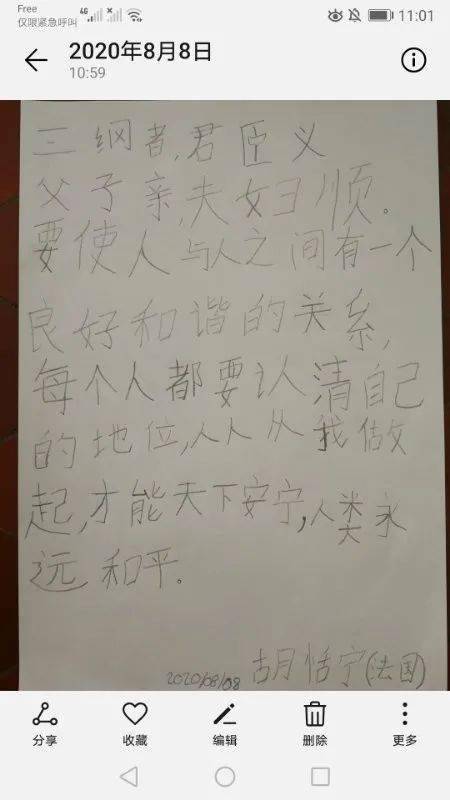 Free
仅限紧急呼叫
4G
11:01
2020年8月8日
10:59
三纲者,君臣义
父子亲,夫妇顺。
要使人与人之间有一个
良好和谐的关系,
每个人都要认清自己
的地位,人人从我做
起,才能天下安宁,人类永
远和平。
2020/08/08 胡恬宁(法国)
分享
收藏
编辑
删除
更多